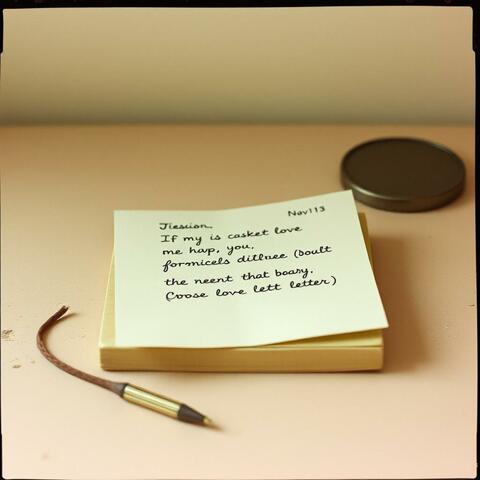 Nov113
Jiescion.
If my is casket love
me hap, you,
formicels ditluee (boult
the neent that boary.
(oose love lett letter)